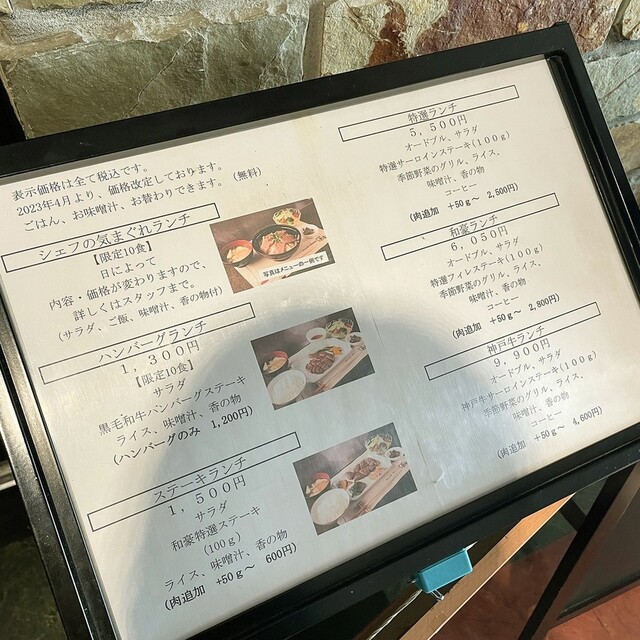 表示価格は全て税込です。
2023年4月より、価格改定しております。
ごはん、お味噌汁、お替わりできます。(無料)
シェフの気まぐれランチ
【限定10食】
日によって
内容・価格が変わりますので、
詳しくはスタッフまで。
(サラダ、ご飯、味噌汁、香の物付)
写真はメニューの一例です
ハンバーグランチ
1,300円
【限定10食】
サラダ
黒毛和牛ハンバーグステーキ
ライス、味噌汁、香の物
(ハンバーグのみ 1,200円)
ステーキランチ
1,500円
サラダ
和豪特選ステーキ
(100g)
ライス、味噌汁、香の物
(肉追加 +50g～ 600円)
特選ランチ
5,500円
オードブル、サラダ
特選サーロインステーキ(100g)
季節野菜のグリル、ライス、
味噌汁、香の物
コーヒー
(肉追加 +50g～ 2,500円)
和豪ランチ
6,050円
オードブル、サラダ
特選フィレステーキ(100g)
季節野菜のグリル、ライス、
味噌汁、香の物
コーヒー
(肉追加 +50g～ 2,800円)
神戸牛ランチ
9,900円
オードブル、サラダ
神戸牛サーロインステーキ(100g)
季節野菜のグリル、ライス、
味噌汁、香の物
コーヒー
(肉追加 +50g～ 4,600円)